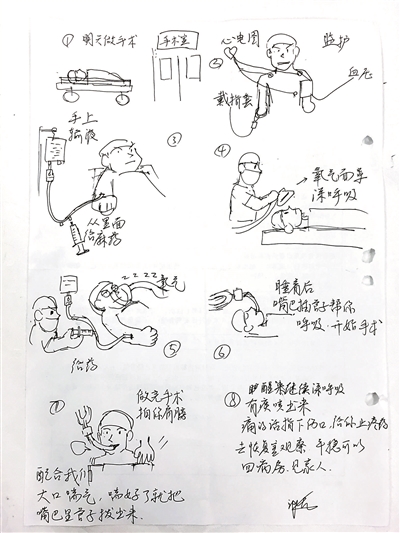 ① 明天做手术
手术室
② 心电图
监护
血压
戴指套
③
手上
输液
从里面
给麻药
④
氧气面罩
深呼吸
zzzz 氧气
⑤
给药
⑥
睡着后
嘴巴插管子帮你
呼吸.开始手术
⑦
做完手术
拍你肩膀
配合我们
大口喘气,喘好了就把
嘴巴里管子拔出来.
⑧ 醒来继续深呼吸
有痰咳出来
痛的话指下伤口,给你上疼药
去恢复室观察 平稳可以
回病房.见家人.